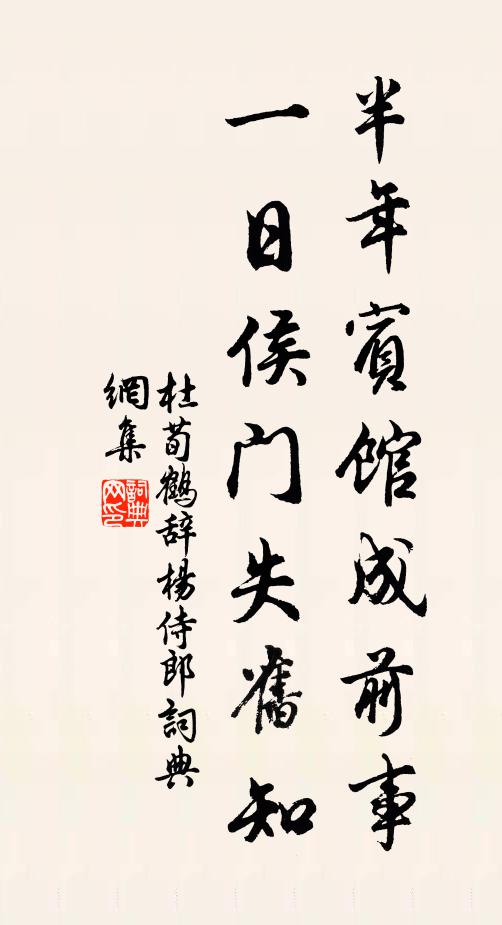 半年賓館成前事
一日侯门失舊知
杜荀鶴辞楊侍郎詞典
網集
詞典
网印